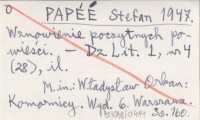 o PAPÉÉ Stefan 1947.
Wznowienie poczytnych po-
wieści. — Dz. Lit. 1, nr 4
(28), il.
M. in.: Władysław Orkan:
Komornicy. Wyd. 6. Warszawa.
Ss. 160.